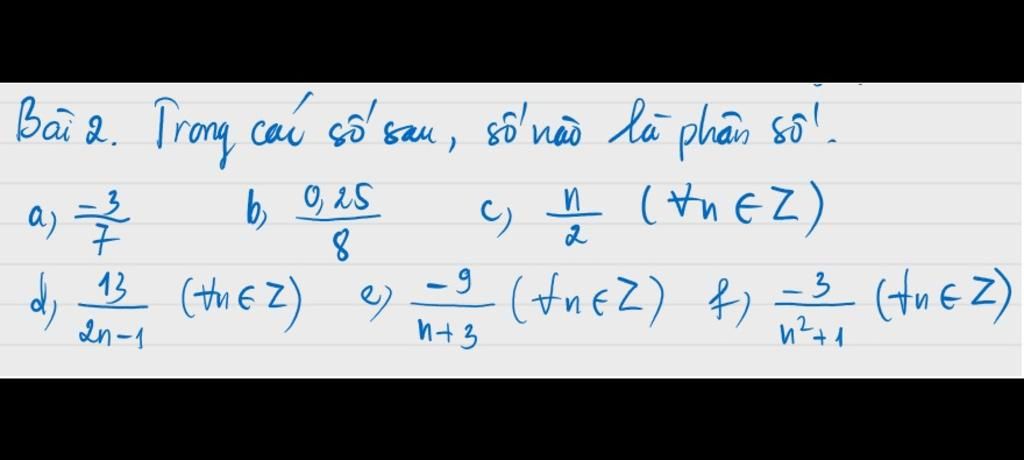 Bài 2. Trong các số sau, số nào là phân số.
a) -3/7 b) 0,25/8 c) n/2 (∀n ∈ Z)
d) 13/2n-1 (∀n ∈ Z) e) -9/n+3 (∀n ∈ Z) f) -3/n²+1 (∀n ∈ Z)